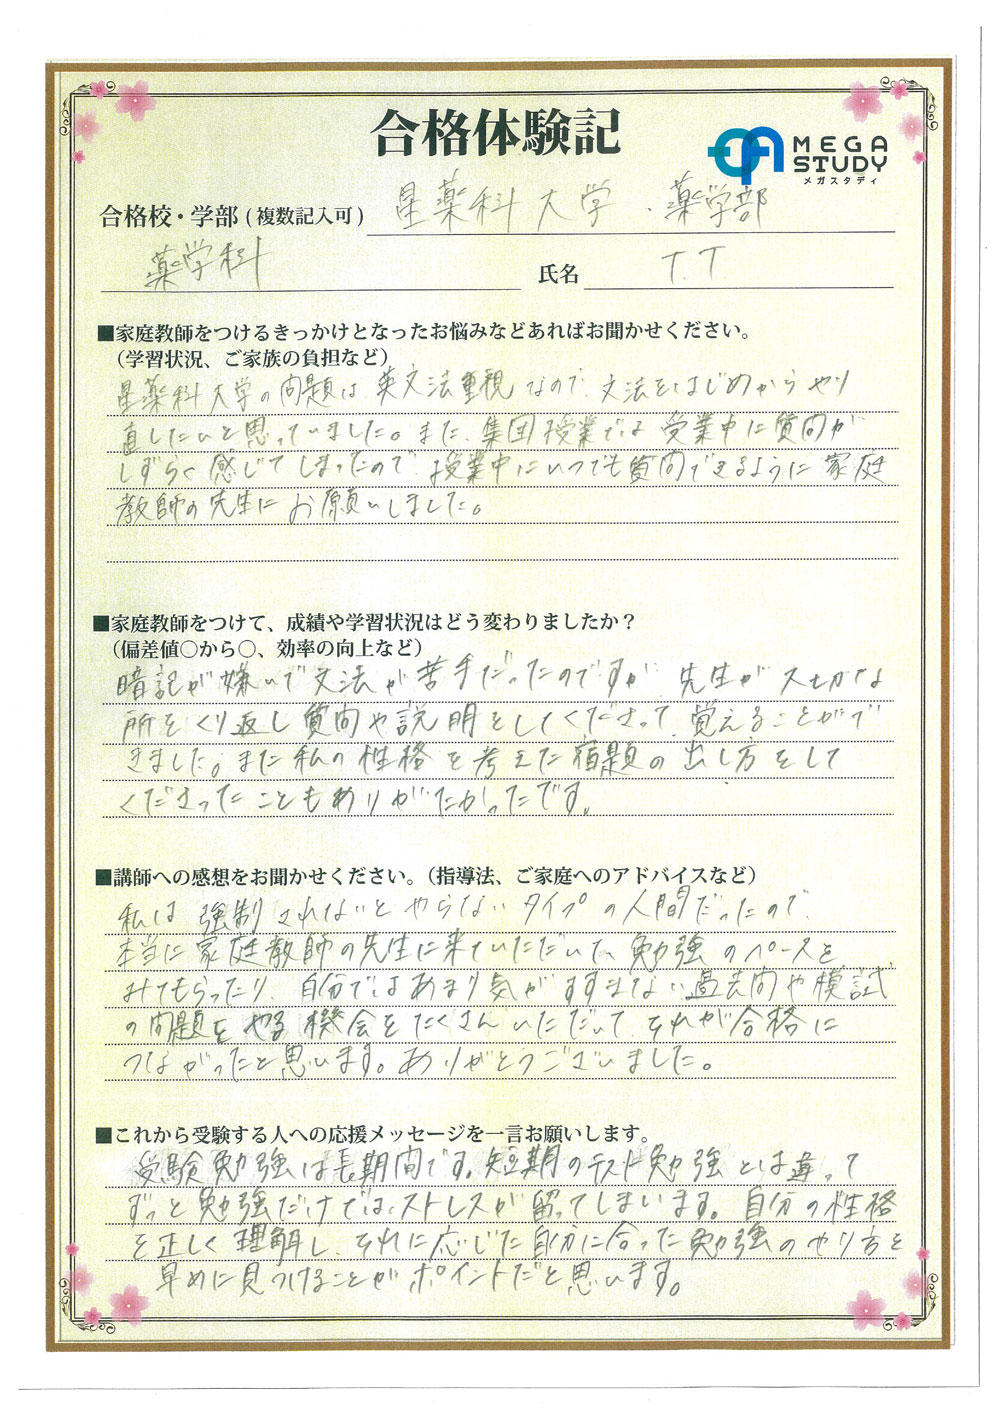 合格体験記
MEGA
STUDY
メガスタディ
合格校・学部(複数記入可) 星薬科大学・薬学部
薬学科 氏名 T.T
■家庭教師をつけるきっかけとなったお悩みなどあればお聞かせください。
(学習状況、ご家族の負担など)
星薬科大学の問題は、英文法重視なので、文法をはじめからやり
直したいと思っていました。また、集団授業では受業中に質問が
しずらく感じてしまったので授業中にいつでも質問できるように家庭
教師の先生にお願いしました。
■家庭教師をつけて、成績や学習状況はどう変わりましたか？
(偏差値○から○、効率の向上など)
暗記が嫌いで文法が苦手だったのですが、先生が大切な
所をくり返し質問や説明をしてくださって、覚えることがで
きました。また私の性格を考えた宿題の出し方をして
くださったこともありがたかったです。
■講師への感想をお聞かせください。(指導法、ご家庭へのアドバイスなど)
私は強制されないとやらないタイプの人間だったので、
本当に家庭教師の先生に来ていただいて、勉強のペースを
みてもらったり、自分ではあまり気がすすまない過去問や模試
の問題をやる機会をたくさんいただいて、それが合格に
つながったと思います。ありがとうございました。
■これから受験する人への応援メッセージを一言お願いします。
受験勉強は長期間です。短期のテスト勉強とは違って
ずっと勉強だけではストレスが留ってしまいます。自分の性格
を正しく理解し、それに応じた自分に合った勉強のやり方を
早めに見つけることがポイントだと思います。